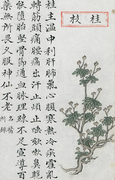 桂枝
桂主溫中利肝肺氣心腹寒熱冷疾霍亂
轉筋頭痛腰痛出汗止煩止唾欬嗽鼻齆
墮胎堅骨節通血脈理疎不足宣導百
藥無所畏久服神仙不老
名醫
別錄